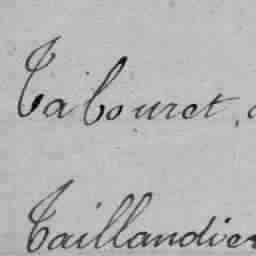 Tabouret,
Taillandier